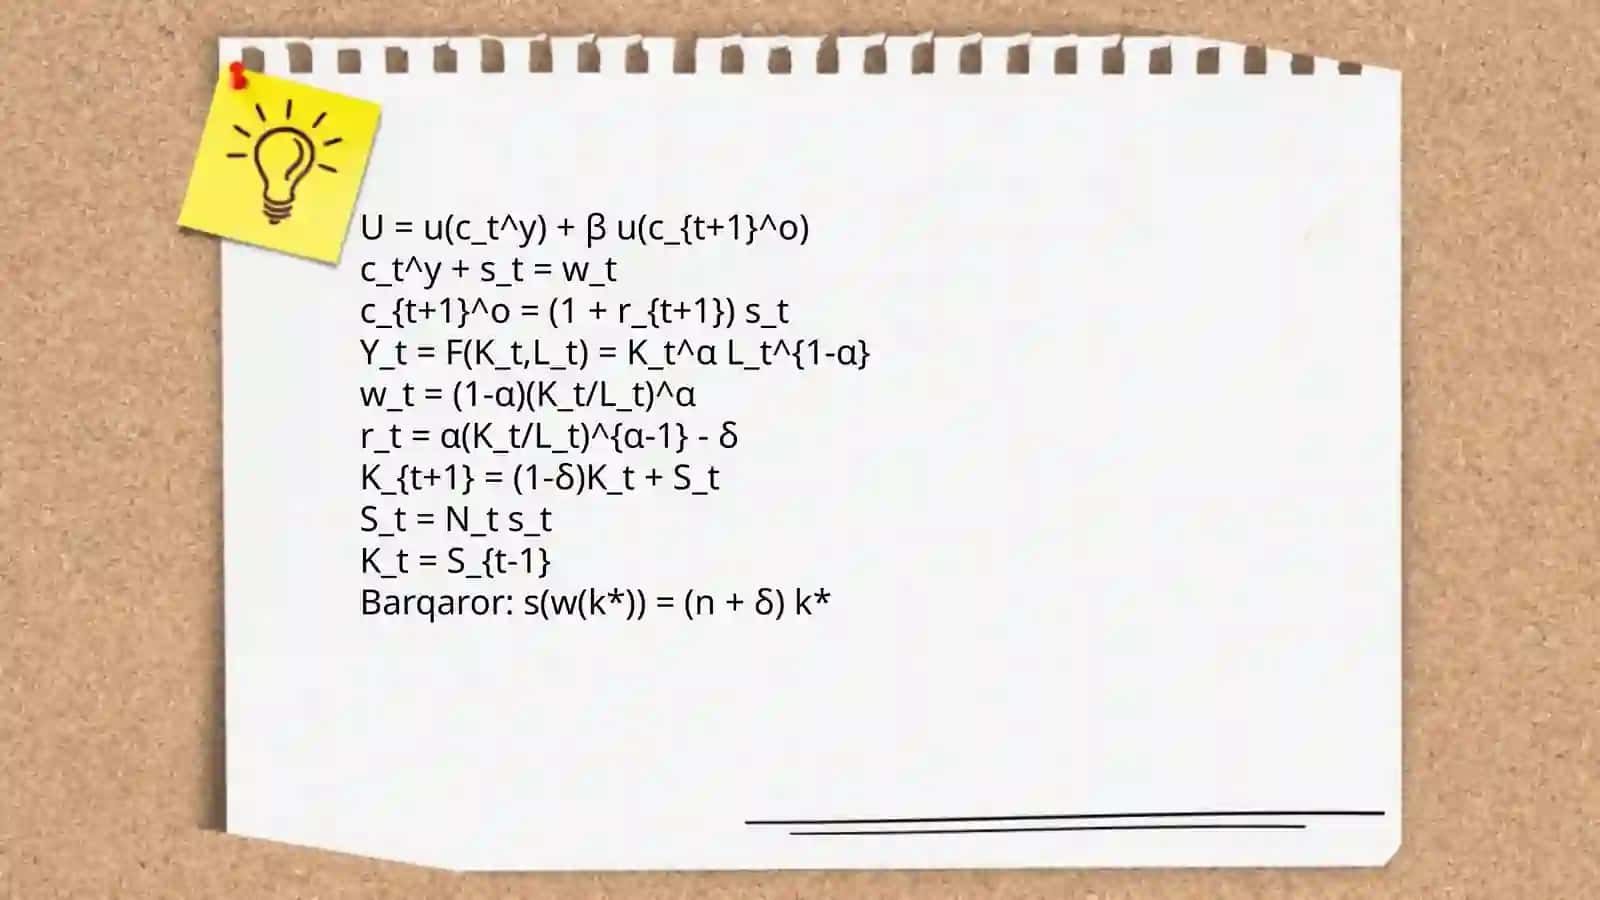 U = u(c_t^y) + β u(c_{t+1}^o)
c_t^y + s_t = w_t
c_{t+1}^o = (1 + r_{t+1}) s_t
Y_t = F(K_t,L_t) = K_t^α L_t^{1-α}
w_t = (1-α)(K_t/L_t)^α
r_t = α(K_t/L_t)^{α-1} - δ
K_{t+1} = (1-δ)K_t + S_t
S_t = N_t s_t
K_t = S_{t-1}
Barqaror: s(w(k*)) = (n + δ) k*